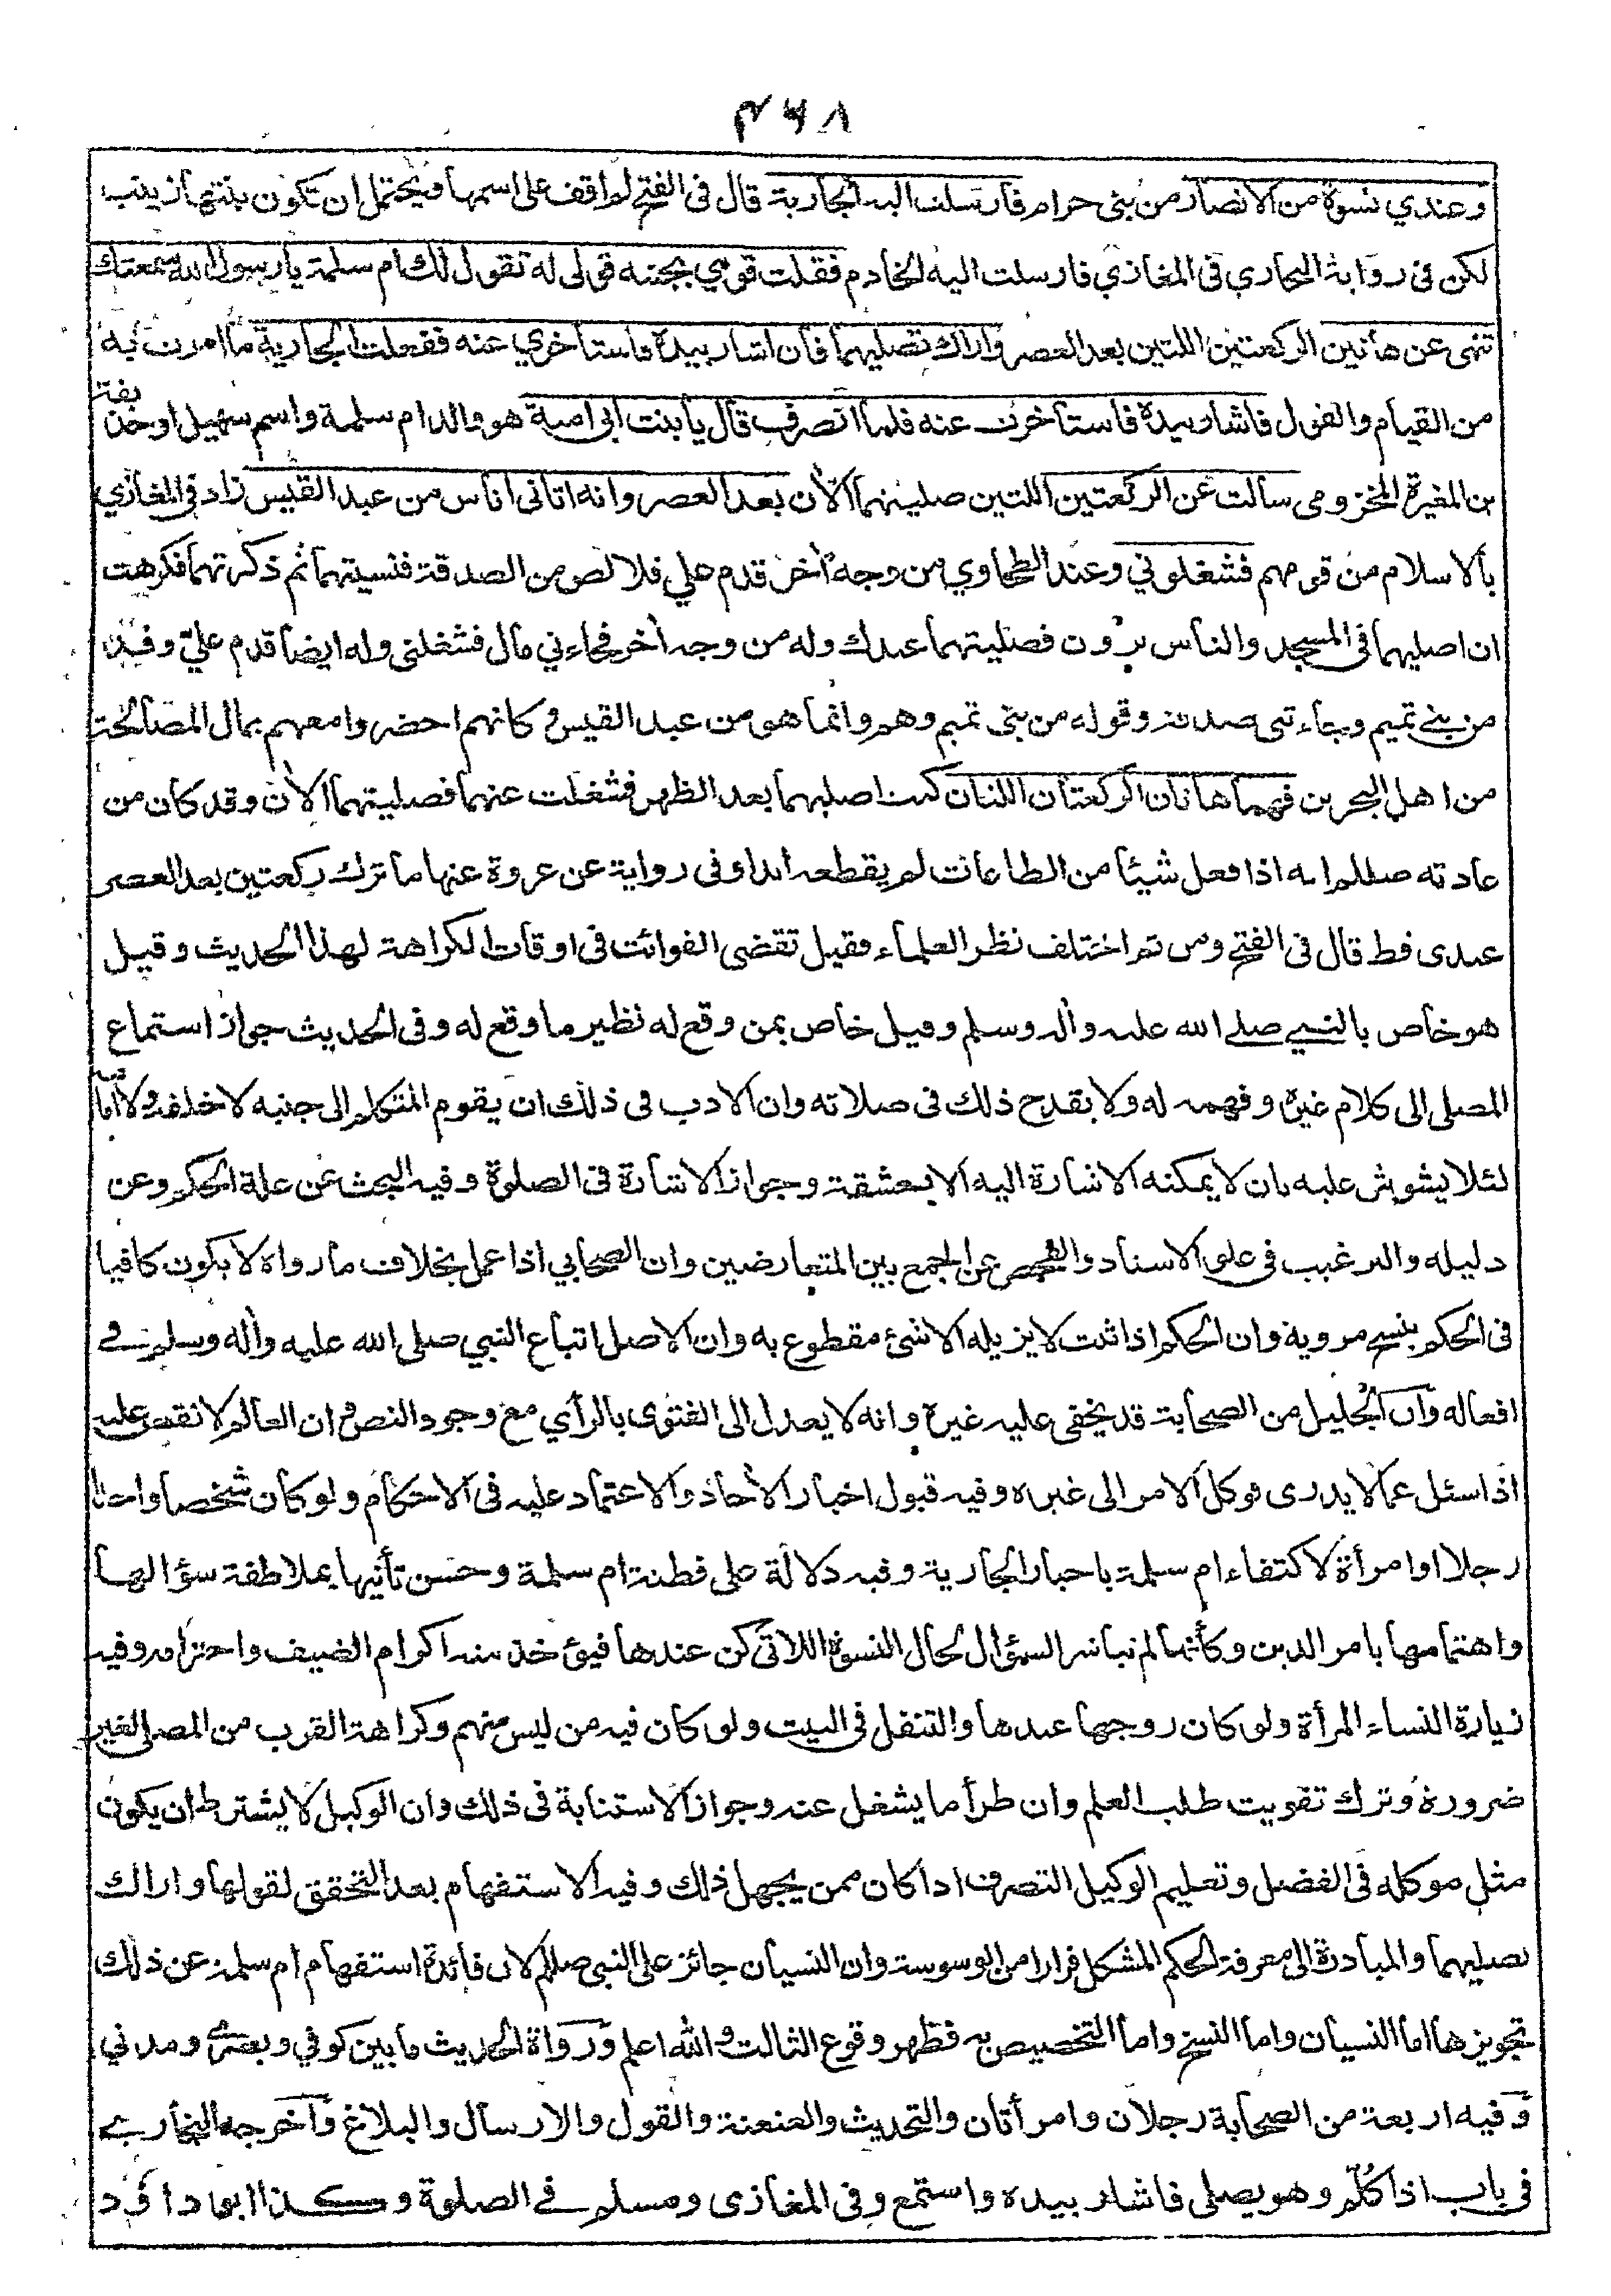 ٣٦٨
وعندي نسوة من الانصار من بني حرام فأرسلت اليه الجارية قال فى الفتح لم اقف على اسمها ويحتمل ان تكون بنتها زينب
لكن فى رواية البخاري فى المغازي فارسلت اليه الخادم فقلت قومي بجنبه قولى له تقول لك ام سلمة يا رسول الله سمعتك
تنهى عن هاتين الركعتين اللتين بعد العصر واراك تصليهما فان اشار بيده فاستأخري عنه ففعلت الجارية ما امرت به
من القيام والقول فاشار بيده فاستأخرت عنه فلما انصرف قال يا بنت ابى امية هو والد ام سلمة واسمه سهيل او حذيفة
بن المغيرة المخزومى سألت عن الركعتين اللتين صليتهما الأن بعد العصر وانه اتانى اناس من عبد القيس زاد فى المغازي
بالاسلام من قومهم فشغلوني وعند الطحاوي من وجه أخر قدم علي قلائص من الصدقة فنسيتهما ثم ذكرتهما فكرهت
ان اصليهما فى المسجد والناس يرون فصليتهما عندك وله من وجه أخر فجاءني مال فشغلنى وله ايضا قدم عليّ وفد
من بني تميم وجاءتنى صدقة وقوله من بنى تميم وهم وانما هو من عبد القيس وكانهم احضروا معهم بمال المصالحة
من اهل البحرين فهما هاتان الركعتان اللتان كنت اصليهما بعد الظهر فشغلت عنهما فصليتهما الأن وقد كان من
عادته صللم انه اذا فعل شيئا من الطاعات لم يقطعه ابدا وفى رواية عن عروة عنها ما ترك ركعتين بعد العصر
عندى قط قال فى الفتح ومن ثم اختلف نظر العلماء فقيل تقضى الفوائت فى اوقات الكراهة لهذا الحديث وقيل
هو خاص بالنبي صلى الله عليه وأله وسلم وقيل خاص بمن وقع له نظير ما وقع له وفى الحديث جواز استماع
المصلى الى كلام غيره وفهمه له ولا يقدح ذلك فى صلاته وان الادب فى ذلك ان يقوم المتكلم الى جنبه لا خلفه ولا أمامه
لئلا يشوش عليه بان لا يمكنه الاشارة اليه الا بمشقة وجواز الاشارة فى الصلوة وفيه البحث عن علة الحكم وعن
دليله والترغيب فى علو الاسناد والفحص عن الجمع بين المتعارضين وان الصحابي اذا عمل بخلاف ما رواه لا يكون كافيا
فى الحكم بنسخ مرويه وان الحكم اذا ثبت لا يزيله الا شئ مقطوع به وان الاصل اتباع النبي صلى الله عليه وأله وسلم في
افعاله وان الجليل من الصحابة قد يخفى عليه غيره وانه لا يعدل الى الفتوى بالرأي مع وجود النص وان العالم لا نقص عليه
اذا سئل عما لا يدرى فوكل الامر الى غيره وفيه قبول اخبار الأحاد والاعتماد عليه فى الاحكام ولو كان شخصا واحدا
رجلا او امرأة لاكتفاء ام سلمة باخبار الجارية وفيه دلالة على فطنة ام سلمة وحسن تأنيها بملاطفة سؤالها
واهتمامها بامر الدين وكأنها لم تباشر السؤال لحال النسوة اللاتى كن عندها فيؤخذ منه اكرام الضيف واحترامه وفيه
زيارة النساء المرأة ولو كان زوجها عندها والتنفل فى البيت ولو كان فيه من ليس منهم وكراهة القرب من المصلى لغير
ضرورة وترك تفويت طلب العلم وان طرأ ما يشغل عنه وجواز الاستنابة فى ذلك وان الوكيل لا يشترط ان يكون
مثل موكله فى الفضل وتعليم الوكيل التصرف اذا كان ممن يجهل ذلك وفيه الاستفهام بعد التحقق لقولها واراك
تصليهما والمبادرة الى معرفة الحكم المشكل فرارا من الوسوسة وان النسيان جائز على النبى صللم لان فائدة استفهام ام سلمة عن ذلك
تجويزها اما النسيان واما النسخ واما التخصيص به فظهر وقوع الثالث والله اعلم ورواة الحديث ما بين كوفي وبصري ومدني
وفيه اربعة من الصحابة رجلان وامرأتان والتحديث والعنعنة والقول والارسال والبلاغ وأخرجه البخاري
فى باب اذا كُلّم وهو يصلى فاشار بيده واستمع وفى المغازى ومسلم في الصلوة وكذا ابو داؤد